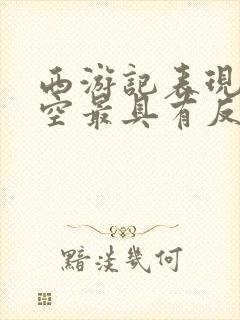 西游記表現
空最具有反
黯淡幾何